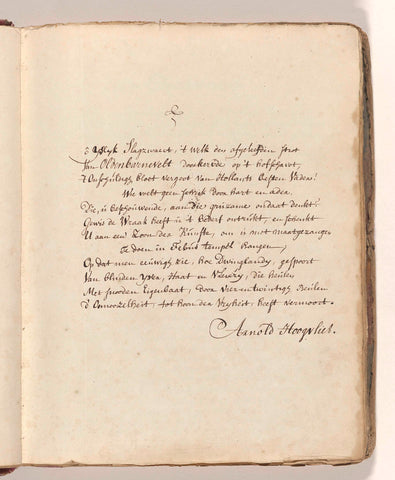 Slagzwaert, 't welk den afgeleefden
Van Oldenbarnevelt doorkerfde op 't hofschavot,
't Onschuldig bloet vergoot van Hollants besten Vader!
Wie voelt geen schrik door hart en ader,
Die, u beschouwende, aan die gruzame ondaat denkt?
Gewis de Wraak heeft u 't bederf ontrukt, en schenkt
U aan een Zoon der Kunste, om u met maatgezangen
Te doen in Febus tempel hangen,
Op dat men eeuwig zie, hoe Dwinglandy, gespoort
Van blinden yver, Haat en, die heulen
Met snooden Eigenbaat, door vierentwintig Beulen
D' Onnozelheit, tot hoon der Vryheit, heeft vermoort.
Arnold Hoogvliet.